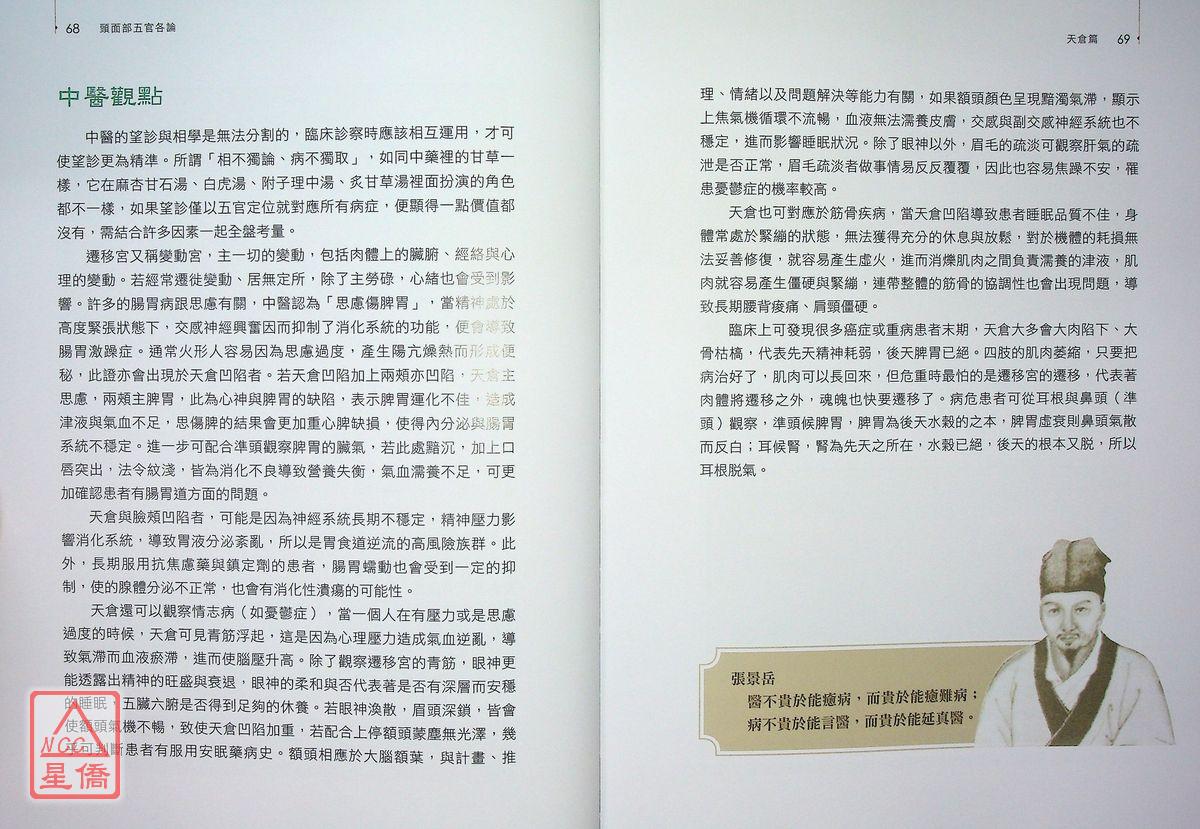 68 頭面部五官各論
中醫觀點
中醫的望診與相學是無法分割的，臨床診察時應該相互運用，才可
使望診更為精準。所謂「相不獨論、病不獨取」，如同中藥裡的甘草一
樣，它在麻杏甘石湯、白虎湯、附子理中湯、炙甘草湯裡面扮演的角色
都不一樣，如果望診僅以五官定位就對應所有病症，便顯得一點價值都
沒有，需結合許多因素一起全盤考量。
遷移宮又稱變動宮，主一切的變動，包括肉體上的臟腑、經絡與心
理的變動。若經常遷徙變動、居無定所，除了主勞碌，心緒也會受到影
響。許多的腸胃病跟思慮有關，中醫認為「思慮傷脾胃」，當精神處於
高度緊張狀態下，交感神經興奮因而抑制了消化系統的功能，便會導致
腸胃激躁症。通常火形人容易因為思慮過度，產生陽亢燥熱而形成便
秘，此證亦會出現於天倉凹陷者。若天倉凹陷加上兩頰亦凹陷，天倉主
思慮，兩頰主脾胃，此為心神與脾胃的缺陷，表示脾胃運化不佳，造成
津液與氣血不足，思傷脾的結果會更加重心脾缺損，使得內分泌與腸胃
系統不穩定。進一步可配合準頭觀察脾胃的臟氣，若此處黯沉，加上口
唇突出，法令紋淺，皆為消化不良導致營養失衡，氣血濡養不足，可更
加確認患者有腸胃道方面的問題。
天倉與臉頰凹陷者，可能是因為神經系統長期不穩定，精神壓力影
響消化系統，導致胃液分泌紊亂，所以是胃食道逆流的高風險族群。此
外，長期服用抗焦慮藥與鎮定劑的患者，腸胃蠕動也會受到一定的抑
制，使的腺體分泌不正常，也會有消化性潰瘍的可能性。
天倉還可以觀察情志病（如憂鬱症），當一個人在有壓力或是思慮
過度的時候，天倉可見青筋浮起，這是因為心理壓力造成氣血逆亂，導
致氣滯而血液瘀滯，進而使腦壓升高。除了觀察遷移宮的青筋，眼神更
能透露出精神的旺盛與衰退，眼神的柔和與否代表著是否有深層而安穩
的睡眠，五臟六腑是否得到足夠的休養。若眼神渙散，眉頭深鎖，皆會
使額頭氣機不暢，致使天倉凹陷加重，若配合上停額頭蒙塵無光澤，幾
乎可判斷患者有服用安眠藥病史。額頭相應於大腦額葉，與計畫、推
NCC
星僑
天倉篇 69
理、情緒以及問題解決等能力有關，如果額頭顏色呈現黯濁氣滯，顯示
上焦氣機循環不流暢，血液無法濡養皮膚，交感與副交感神經系統也不
穩定，進而影響睡眠狀況。除了眼神以外，眉毛的疏淡可觀察肝氣的疏
泄是否正常，眉毛疏淡者做事情易反反覆覆，因此也容易焦躁不安，罹
患憂鬱症的機率較高。
天倉也可對應於筋骨疾病，當天倉凹陷導致患者睡眠品質不佳，身
體常處於緊繃的狀態，無法獲得充分的休息與放鬆，對於機體的耗損無
法妥善修復，就容易產生虛火，進而消爍肌肉之間負責濡養的津液，肌
肉就容易產生僵硬與緊繃，連帶整體的筋骨的協調性也會出現問題，導
致長期腰背痠痛、肩頸僵硬。
臨床上可發現很多癌症或重病患者末期，天倉大多會大肉陷下、大
骨枯槁，代表先天精神耗弱，後天脾胃已絕。四肢的肌肉萎縮，只要把
病治好了，肌肉可以長回來，但危重時最怕的是遷移宮的遷移，代表著
肉體將遷移之外，魂魄也快要遷移了。病危患者可從耳根與鼻頭（準
頭）觀察，準頭候脾胃，脾胃為後天水穀的之本，脾胃虛衰則鼻頭氣散
而反白；耳候腎，腎為先天之所在，水穀已絕，後天的根本又脫，所以
耳根脫氣。
張景岳
醫不貴於能癒病，而貴於能癒難病；
病不貴於能言醫，而貴於能延真醫。